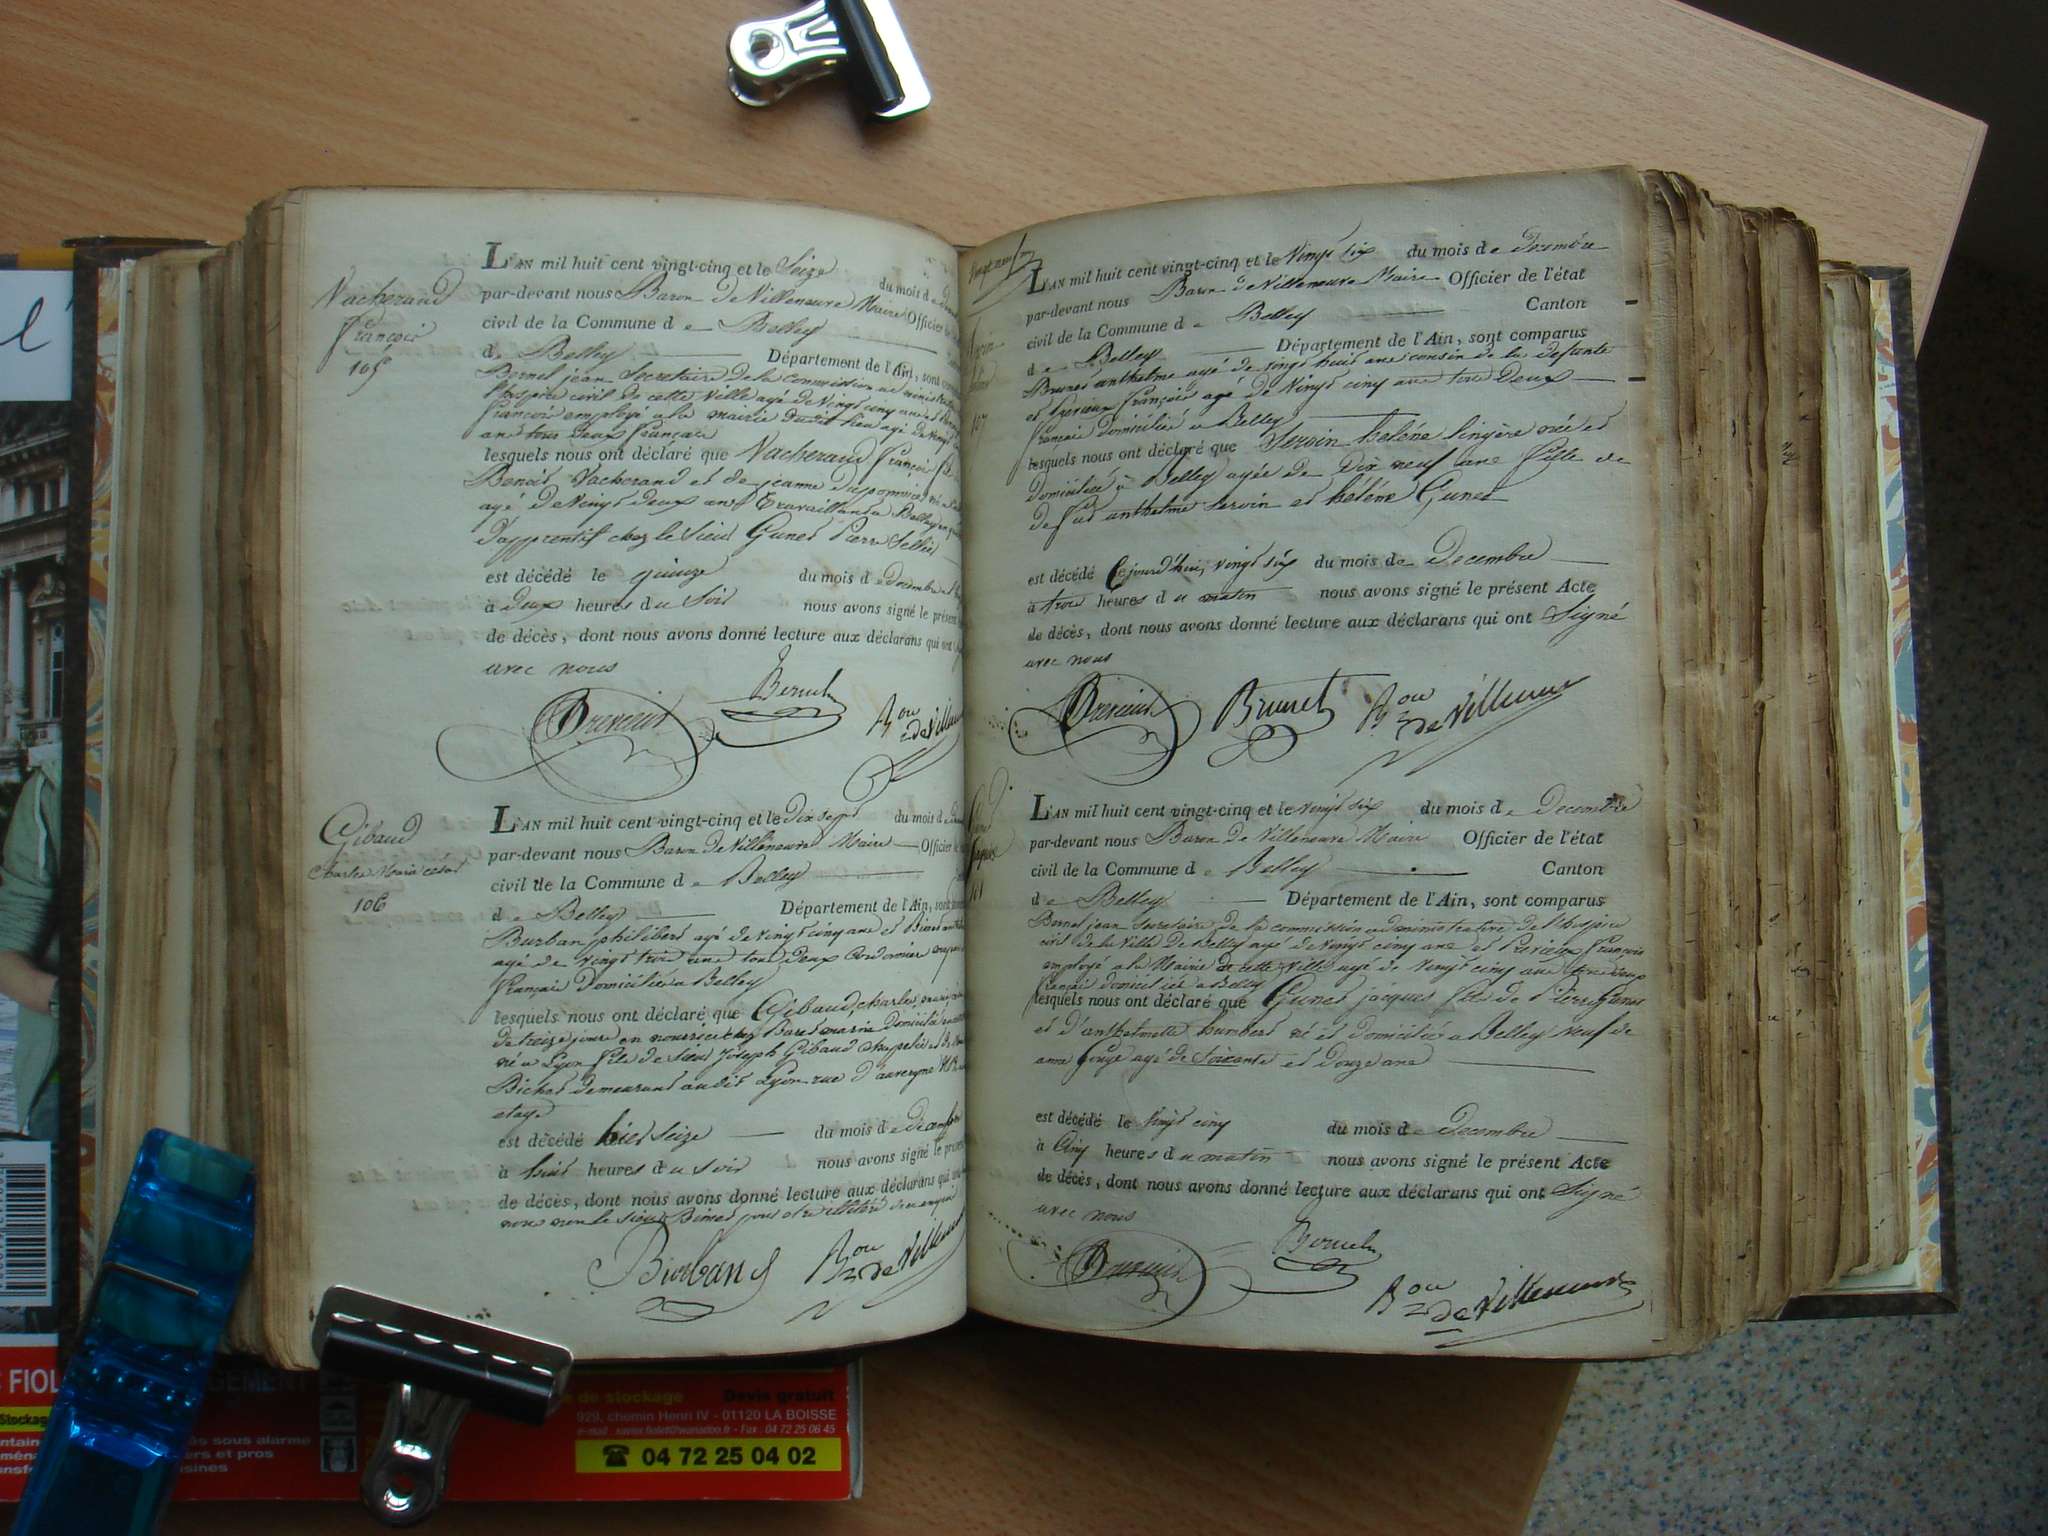 Vacherand
françois
105
L'AN mil huit cent vingt-cinq et le Seize du mois d
par-devant nous Baron de Villeneuve Maire Officier
civil de la Commune d e Belley
d e Belley Département de l'Ain, sont
Bernel jean Secretaire de la commission
hospice civil de cette ville agé de vingt cinq ans et
françois employé a la mairie dudit lieu agé de vingt
ans tous deux français
lesquels nous ont déclaré que Vacherand françois fils
Benoit Vacherand et de jeanne
agé de vingt deux ans travaillant a Belley en
d'apprentif chez le Sieur Gunet Pierre Sellier
est décédé le quinze du mois d e Decembre
à deux heures d u Soir nous avons signé le présent
de décès, dont nous avons donné lecture aux déclarans qui ont
avec nous
Bernel
Prerieux
Bon de Villeneuve
Gibaud
Charles Marie césar
106
L'AN mil huit cent vingt-cinq et le Dix sept du mois d
par-devant nous Baron de Villeneuve Maire Officier
civil de la Commune d e Belley
d e Belley Département de l'Ain, sont
Burban philibert agé de vingt cinq ans et Binet
agé de vingt trois ans tous deux Cordonnier
français Domicilié a Belley
lesquels nous ont déclaré que Gibaud, charles
de treize jours en nourrice chez Baret marie Domicilié
né a Lyon fils de Sieur Joseph Gibaud chapelier et de
Bichet demeurant audit Lyon rue d'auvergne
etage
est décédé hier Seize du mois d e decembre
à huit heures d u Soir nous avons signé le présent
de décès, dont nous avons donné lecture aux déclarans qui ont
nous non le Sieur Binet pour etre illétéré de ce enquis
Burban
Bon de Villeneuve
107
L'AN mil huit cent vingt-cinq et le Vingt six du mois d e Decembre
par-devant nous Baron de Villeneuve Maire Officier de l'état
civil de la Commune d e Belley Canton
d e Belley Département de l'Ain, sont comparus
Brunet anthelme agé de vingt huit ans cousin de la defunte
et Prerieux françois agé de Vingt cinq ans tous Deux
français domicilié a Belley
lesquels nous ont déclaré que Servin heléne lingère née et
domiciliée à Belley agée de Dix neuf ans fille de
de fut anthelme Servin et hélène Gunet
est décédé Cejourd'hui, vingt six du mois d e Decembre
à trois heures d u matin nous avons signé le présent Acte
de décès, dont nous avons donné lecture aux déclarans qui ont Signé
avec nous
Prerieux
Brunet
Bon de Villeneuve
L'AN mil huit cent vingt-cinq et le vingt six du mois d e Decembre
par-devant nous Baron de Villeneuve Maire Officier de l'état
civil de la Commune d e Belley Canton
d e Belley Département de l'Ain, sont comparus
Bernel jean Secretaire de la commission administrative de l'hospice
civil de la Ville de Belley agé de vingt cinq ans et Prerieux françois
employé a la Mairie de cette Ville agé de vingt cinq ans tous deux
français domiciliés a Belley
lesquels nous ont déclaré que Gunet jacques fils de Pierre Gunet
et d'anthelmette humbert né et domicilié a Belley veuf de
anne Gouge agé de Soixante et Douze ans
est décédé le vingt cinq du mois d e Decembre
à Cinq heures d u matin nous avons signé le présent Acte
de décès, dont nous avons donné lecture aux déclarans qui ont Signé
avec nous
Prerieux
Bernel
Bon de Villeneuve
FIOL
de stockage Devis gratuit
929, chemin Henri IV - 01120 LA BOISSE
☎ 04 72 25 04 02
sous alarme
ers et pros